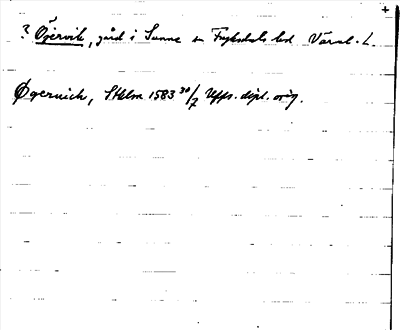 ? Ögervik, gård i Sunne sn Fryksdals hd Värml. l.
Øgeruich, Sthlm 1583 30/7 Upps. dipl. orig.